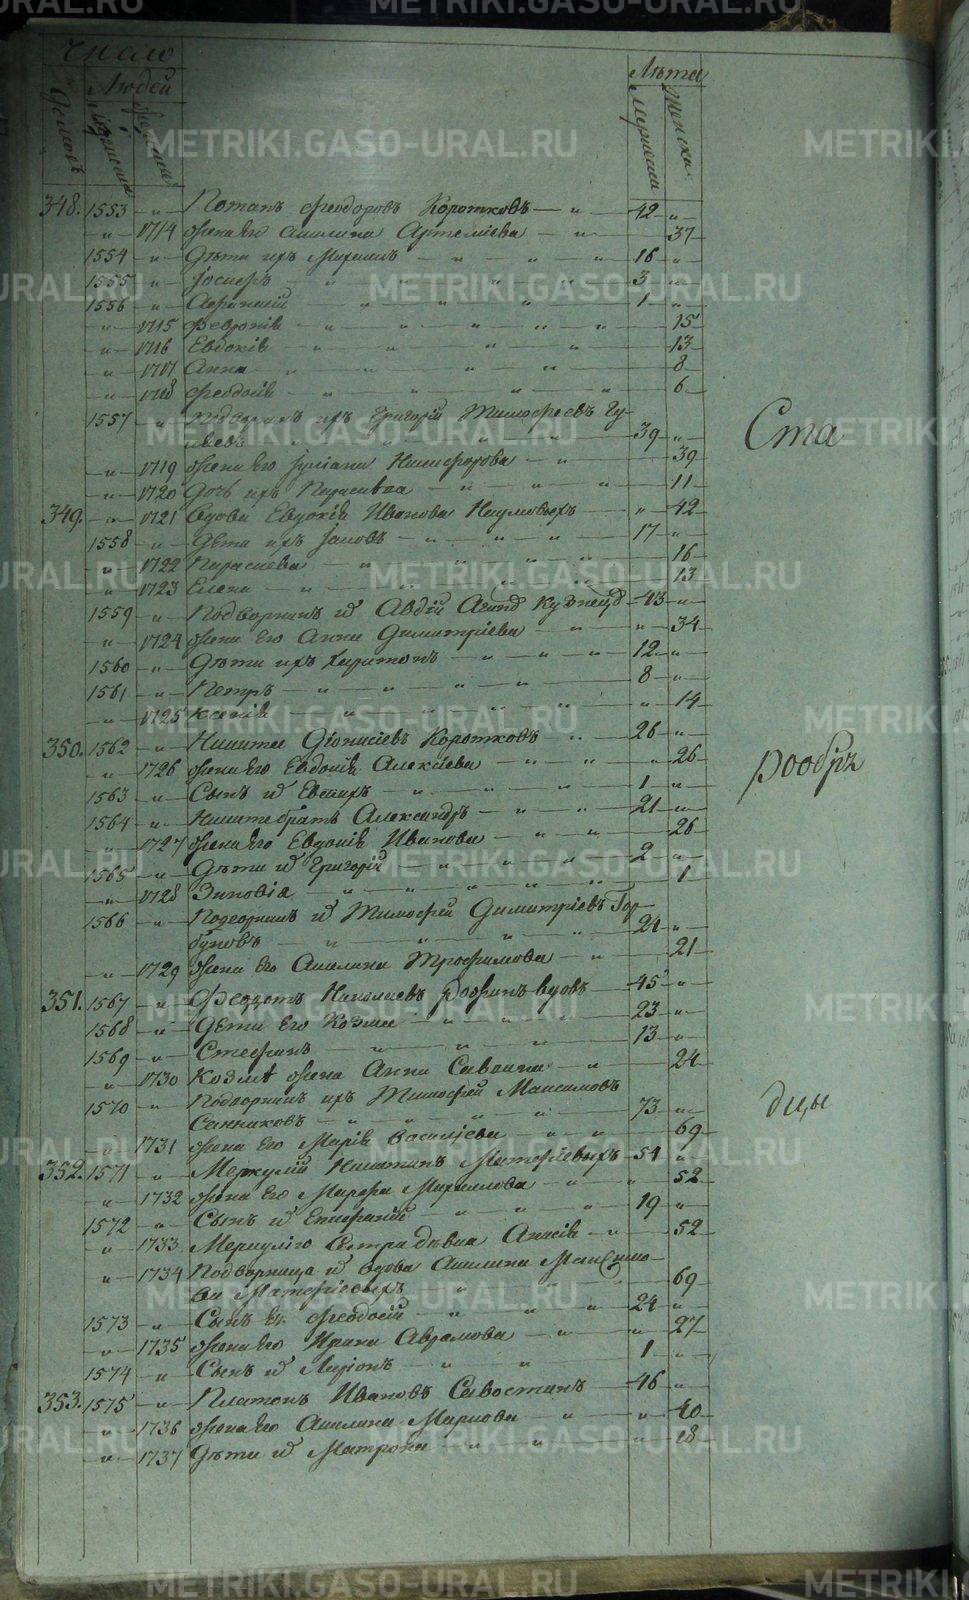 Число
Людей
Лѣта
Домовъ
Мужеска
Женска
Мужеска
Женска
348. 1553 „ Потапъ Ѳеодоровъ Коротковъ „ 42 „
„ 1714 жена Его Акилина Артемiева „ 37
1554 „ Дѣти ихъ Михаилъ „ „ „ 16 „
1555 „ Iосифъ „ „ „ 3 „
1556 „ Аѳанасiй „ „ „ 1 „
„ 1715 Февронiя „ „ „ „ 15
„ 1716 Евдокiя „ „ „ 13
„ 1717 Анна „ „ „ „ 8
„ 1718 Ѳеодосiя „ „ „ „ 6
1557 „ Подворникъ ихъ Григорiй Тимоѳеевъ Гу-
„ „ „ 39 „
„ 1719 жена Его Iулiана Никифорова „ 39
„ 1720 Дочь ихъ Параскева „ „ „ 11
349. „ 1721 Вдова Евдокiя Иванова Наумовыхъ „ 42
1558 „ Дѣти ихъ Iаковъ „ „ „ 17 „
„ 1722 Параскева „ „ „ 16
„ 1723 Елена „ „ „ „ 13
1559 „ Подворникъ и Авдiй Кузнецо 43 „
„ 1724 жена Его Анна Димитрiева „ „ „ 34
1560 „ Дѣти ихъ Харитонъ „ „ „ 12 „
1561 „ Петръ „ „ „ „ 8 „
„ 1725 Ксенiя „ „ „ „ „ 14
350. 1562 „ Никита Дiонисiевъ Коротковъ „ 26 „
„ 1726 жена Его Евдокiя Алексiева „ „ „ 26
1563 „ Сынъ и „ „ „ 1 „
1564 „ Никитѣ братъ Александръ „ „ 21 „
„ 1727 жена Его Евдокiя Иванова „ „ 26
1565 „ Дѣти и Григорiй „ „ „ 2 „
„ 1728 Зиновiя „ „ „ „ „ 1
1566 „ Подворникъ и Тимофей Димитрiевъ Гор-
буновъ „ „ „ 24 „
„ 1729 жена Его Акилина Трофимова „ 21
351. 1567 „ Ѳеодотъ Николаевъ вдовъ 45 „
1568 „ Дѣти Его Козма „ „ „ 23 „
1569 „ Стефанъ „ „ „ 13 „
„ 1730 Козмѣ жена Анна Саввина „ 24
1570 „ Подворникъ ихъ Тимофей Максимовъ
Санниковъ „ „ „ 73 „
„ 1731 жена Его Марiя Васильева „ „ 69
352. 1571 „ Меркулiй Никитинъ Матфiевыхъ 54 „
„ 1732 жена Его Марѳа Михаилова „ „ 52
1572 „ Сынъ и Епифанiй „ „ „ 19 „
„ 1733 Меркулiю Сестра дѣвка Анисiя „ 52
„ 1734 Подворница и вдова Акилина Максимо-
ва Матфiевыхъ „ „ 69
1573 „ Сынъ Ея Ѳеодосiй „ „ „ 24 „
„ 1735 жена Его Ирина Аврамова „ „ 27
1574 „ Сынъ и „ „ 1 „
353. 1575 „ Платонъ Ивановъ Савостинъ 46 „
„ 1736 жена Его Акилина Маркова „ „ 40
„ 1737 Дѣти и Матрона „ „ „ 18
Ста
рообрѧ
дцы
METRIKI.GASO-URAL.RU